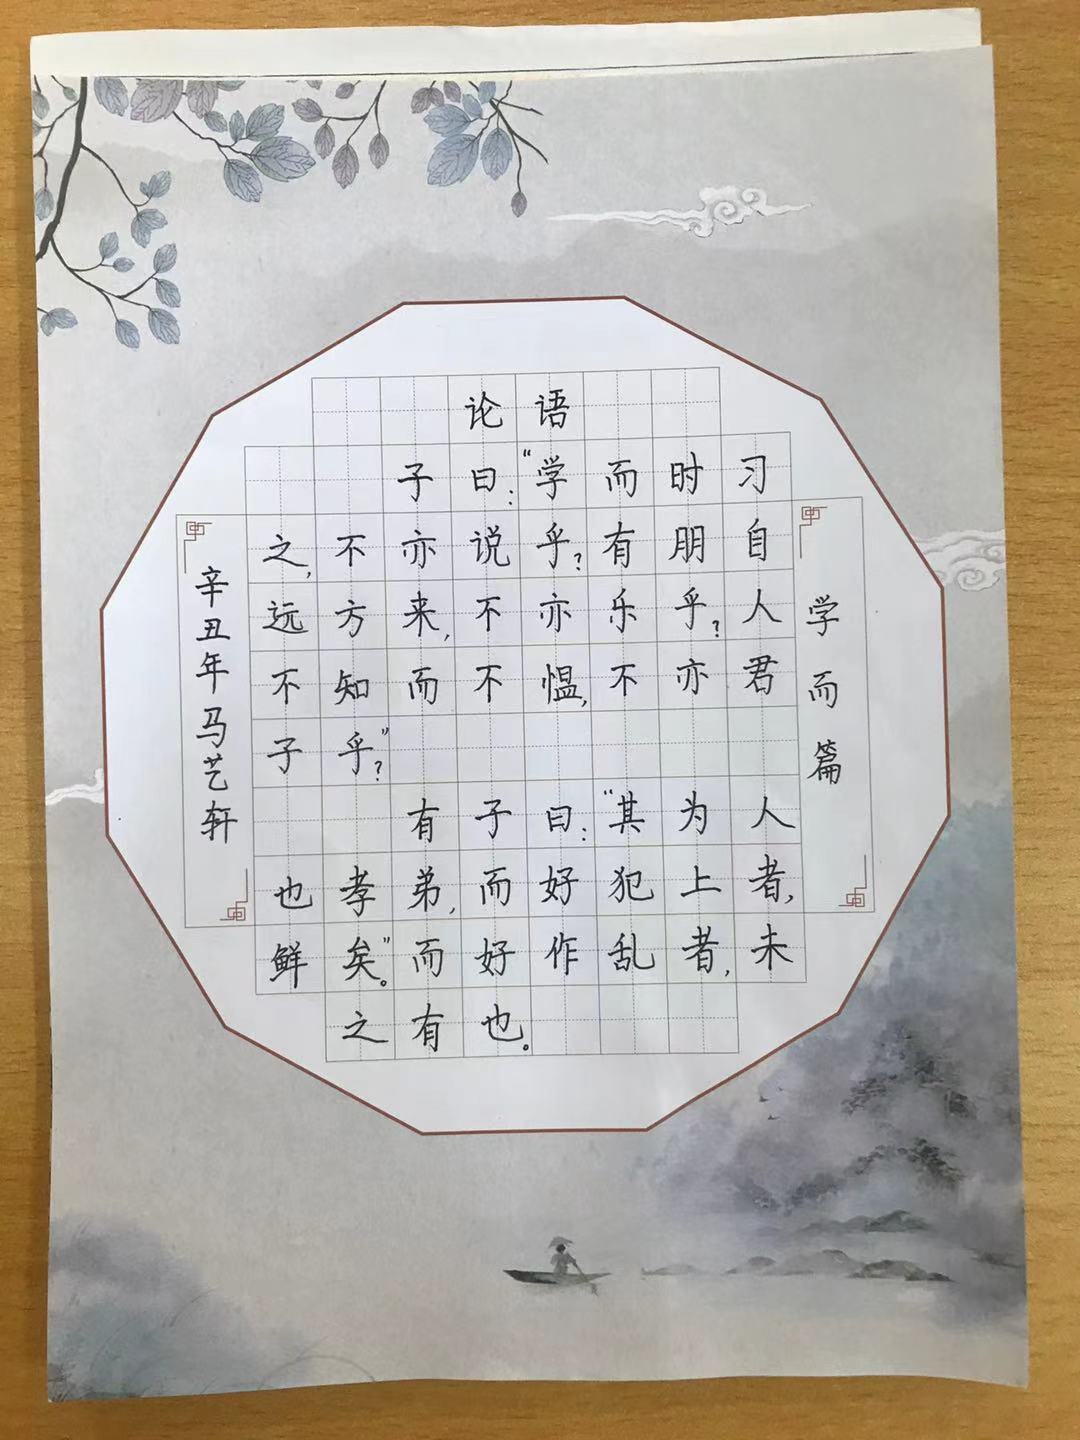 论语
子曰：“学而时习
之，不亦说乎？有朋自
远方来，不亦乐乎？人
不知而不愠，不亦君
子乎？”
有子曰：“其为人
也孝弟，而好犯上者，
鲜矣。”而好作乱者，未
之有也。
学而篇
辛丑年马艺轩